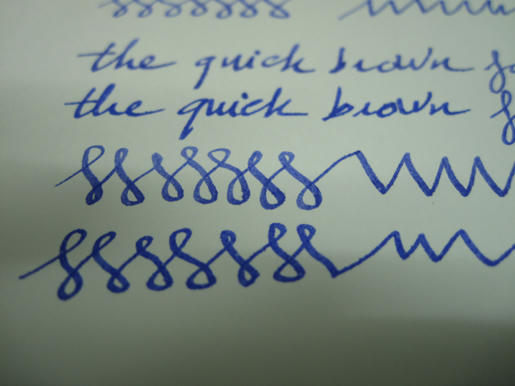 the quick brown
the quick brown